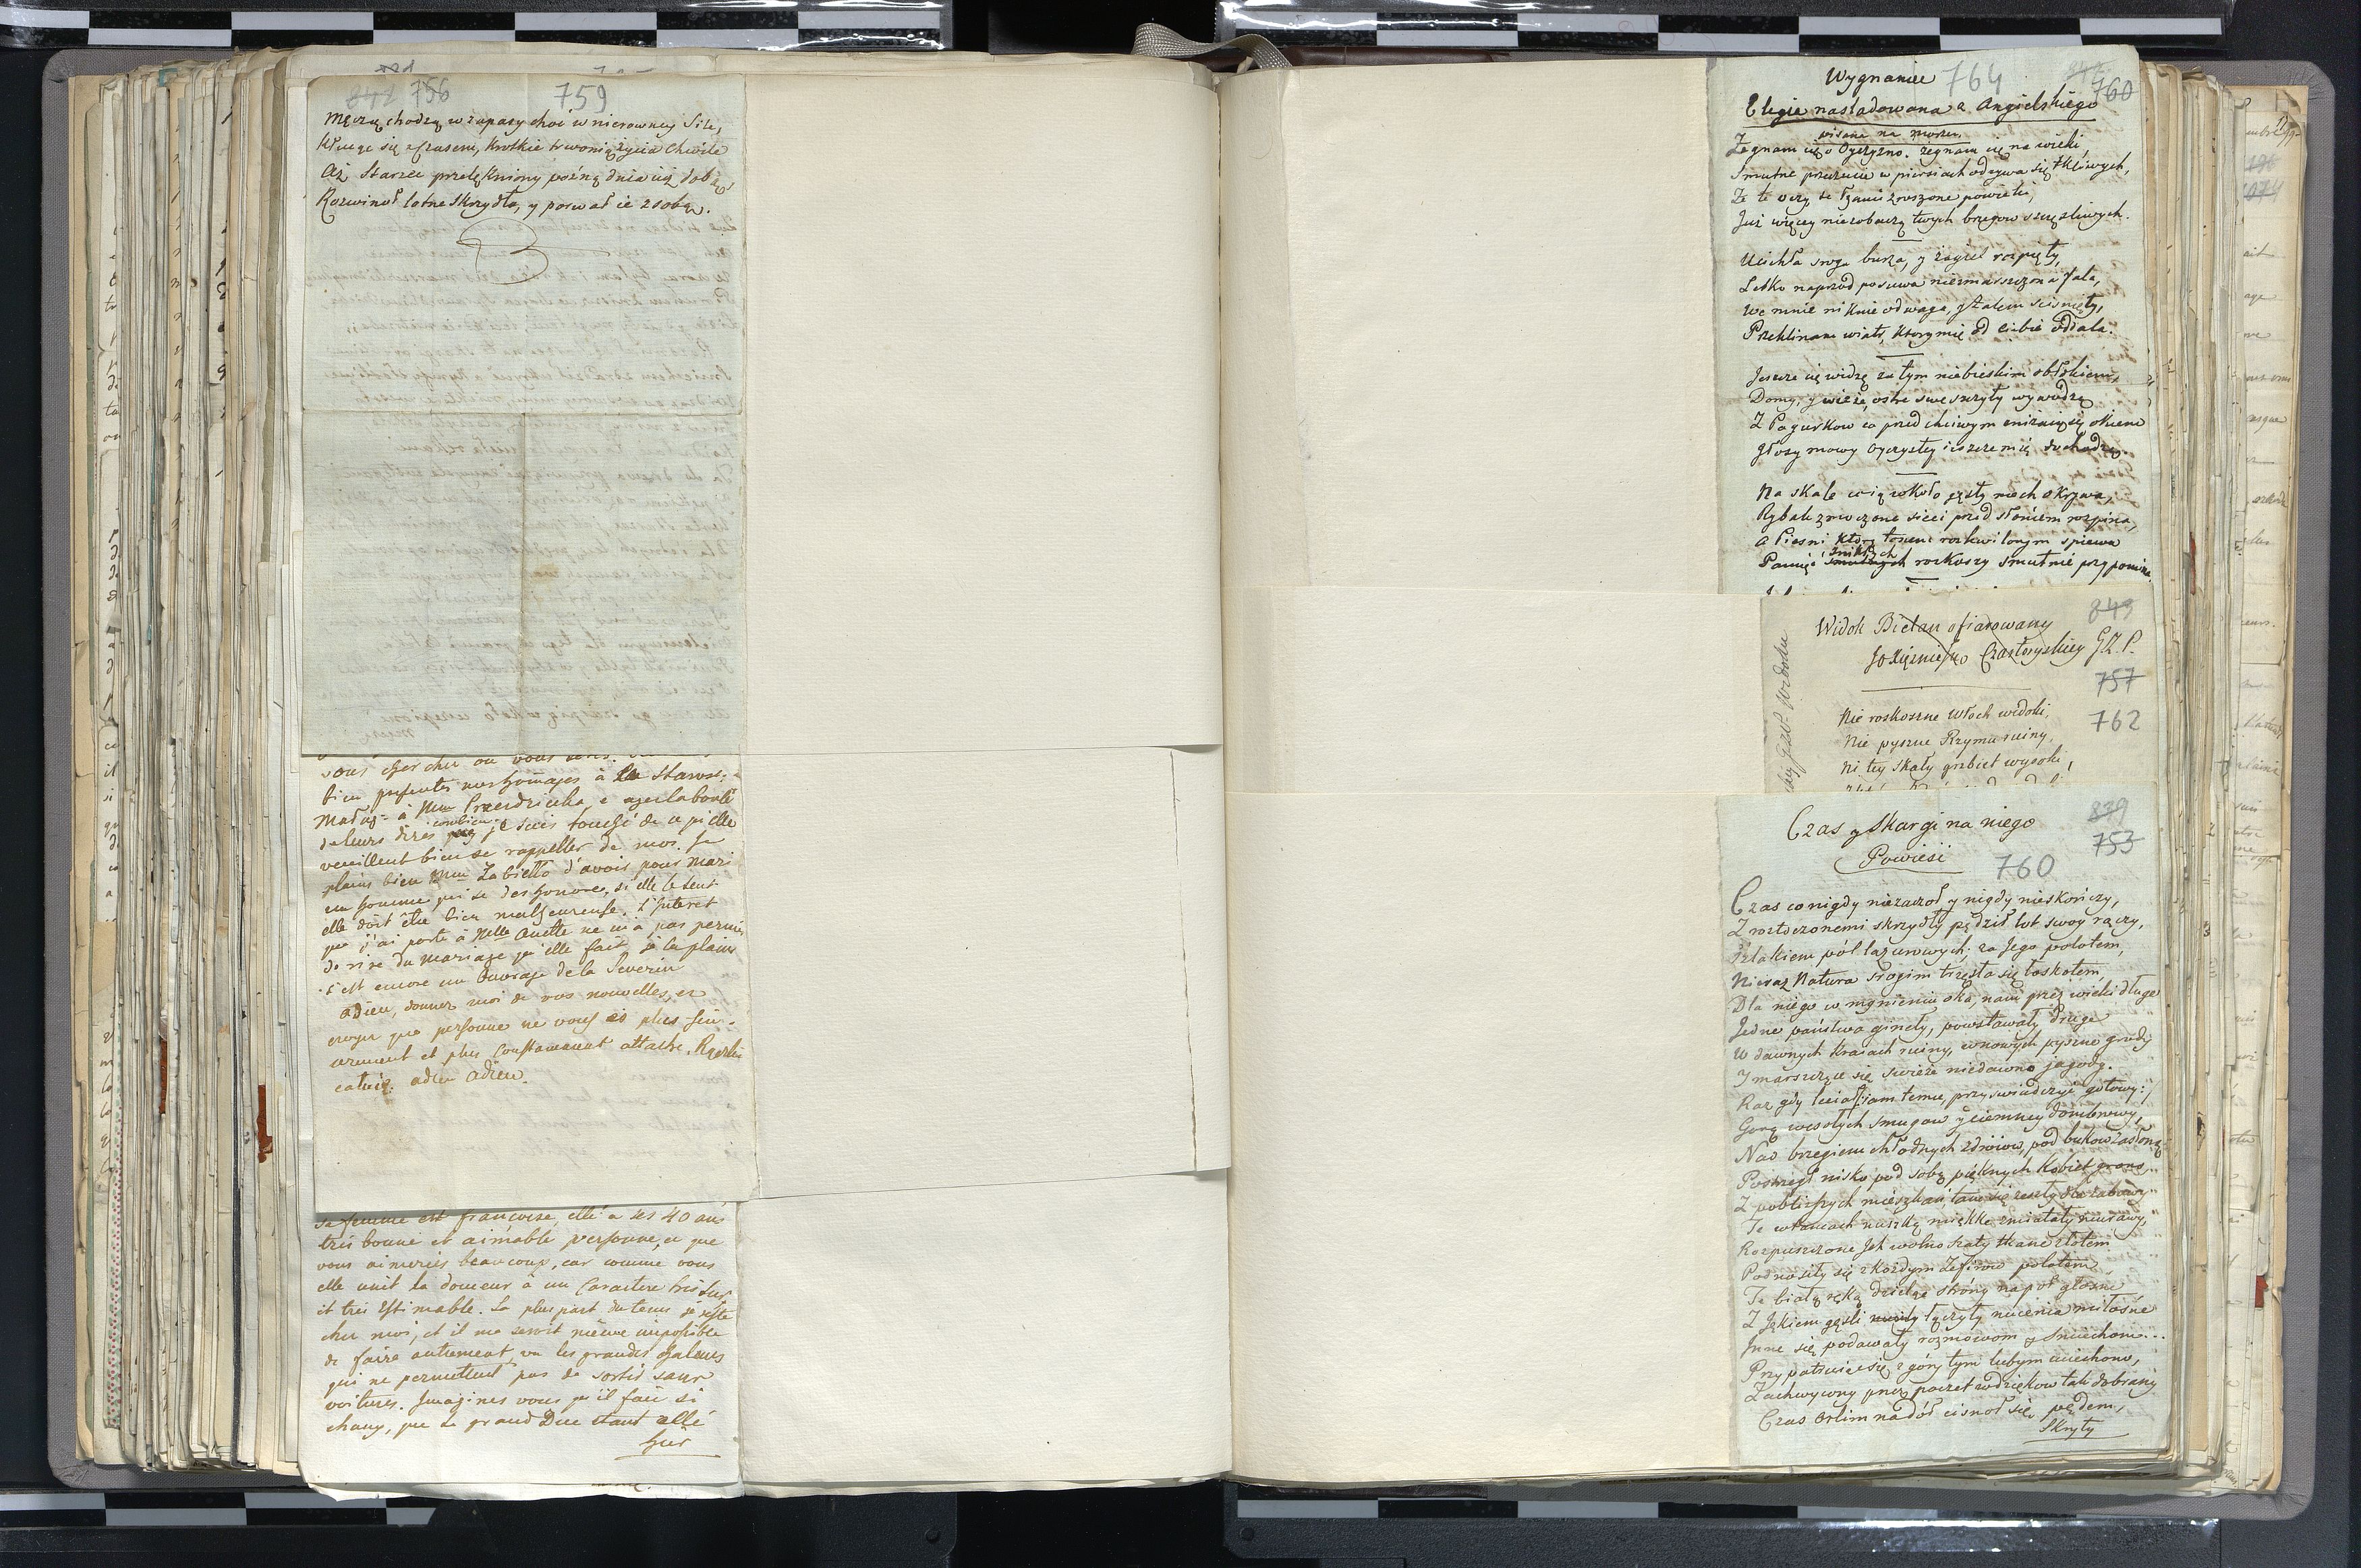 842 756 759
Męczą chodzą w zapasy choć w nierowney Sile,
Kłucąc się z Czasem, krotkie trwonią życia chwile
Aż Starzec przelękniony późną dnia iuż dobą,
Rozwinoł lotne Skrzydła, y porwał ie z sobą.
vous chercher ou vous
bien presenter mes hommages à la Starost:
Małaż: à Mme Przezdziecka, e ayez la bonté
de leurs dires combien je suis touché de ce qu'elle
veuillent bien se rappeller de moi. Je
plains bien Mme Zabiełło d'avoir pour mari
un homme qui se deshonore, si elle le sent
elle doit être bien malheureuse. L'Interet
que j'ai porte à Melle Anette ne m'a pas permis
de rire du mariage qu'elle fait, je la plains
c'est encore un Ouvrage de la Severin
adieu, donnez moi de vos nouvelles, et
croyez que personne ne vous es plus sin-
cerement et plus constamment attaché.
adieu adieu.
Sa femme est françoise, elle a ses 40 ans
très bonne et aimable personne, et que
vous aimeriés beaucoup, car comme vous
elle unit la douceur à un Caractere très sur
et très Estimable. La plus part du tems je reste
chez moi, et il me seroit même impossible
de faire autrement, vu les grandes chaleurs
qui ne permettent pas de sortir sans
voitures. Imagines vous qu'il fait si
chaux, que le grand Duc etant allé
hier
Wygnaniec 764 760
Elegie nasladowana z Angielskiego
pisana na morzu
Żegnam cię o Oyczyzno. żegnam cię na wieki,
Smutne przeczucie w piersiach odzywa się tkliwych,
Że te oczy te łzami zroszone powieki,
Już więcey niezobaczą twych brzegow szczęśliwych.
Ucichła sroga burza, y żagiel rozpięty,
Lekko naprzód posuwa niezmarszczona fala,
We mnie niknie odwaga, y żalem scisnięty,
Przeklinam wiatr, ktory mię od ciebie oddala.
Jeszcze cię widzę za tym niebieskim obłokiem,
Domy, y wieże, ostre swe szczyty wywodzą
Z Pagurkow co przed chciwym zniżaią się okiem
Głosy mowy Oyczystey ieszcze mię dochodzą.
Na skale co ią wkoło gęsty mech okrywa,
Rybak zmoczone sieci przed słońcem rozpina,
A Piesni którą tonem rozkwilonym spiewa
Pamięć zniktych smutnych roskoszy smutnie przypomina.
Widok Bielan ofiarowany 843
Jo Xiężnie Czartoryskiey G.Z.P.
757
762
Nie roskoszne Włoch widoki,
Nie pyszne Rzymu ruiny,
Ni tey skały grzbiet wysoki,
Czas y Skargi na niego 839
Powieść 760 753
Czas co nigdy niezaczoł y nigdy nieskończy,
Z roztoczonemi skrzydły pędził lot swoy rączy,
Szlakiem pól lazurowych; za Jego polotem,
Nieraz Natura srogim trzęsła się łoskotem,
Dla niego w mgnieniu oka, nam przez wieki długe
Jedne państwa gineły, powstawały drugie
W dawnych Kraiach ruiny, w nowych pyszne grody
I marszczące się swieże niedawno jagody.
Raz gdy leciał (sam temu przyswiadczyć gotowy:)
Gorą wesołych smugow y ciemney dombrowy,
Nad brzegiem chłodnych zdroiow, pod bukow zasłoną
Postrzegł nisko pod sobą pięknych Kobiet grono.
Z pobliższych mieszkań tam się zeszły dla zabawy
Te w tańcach nuszką miękkę zmiatały murawy,
Rozpuszczone Jch wolno szaty tkane złotem
Podnosiły się z każdym Zefirow polotem
Te białą ręką dzieląc strony napoł głosne
Z Jękiem gęśli łączyły nucenia miłośne
Jnne się podawały rozmowom y smiechom...
Przypatruiec się z góry tym lubym uciechom,
Zachwycony przez poczet wdziękow tak dobrany
Czas orlim nadół cisnoł się pędem,
Skryty